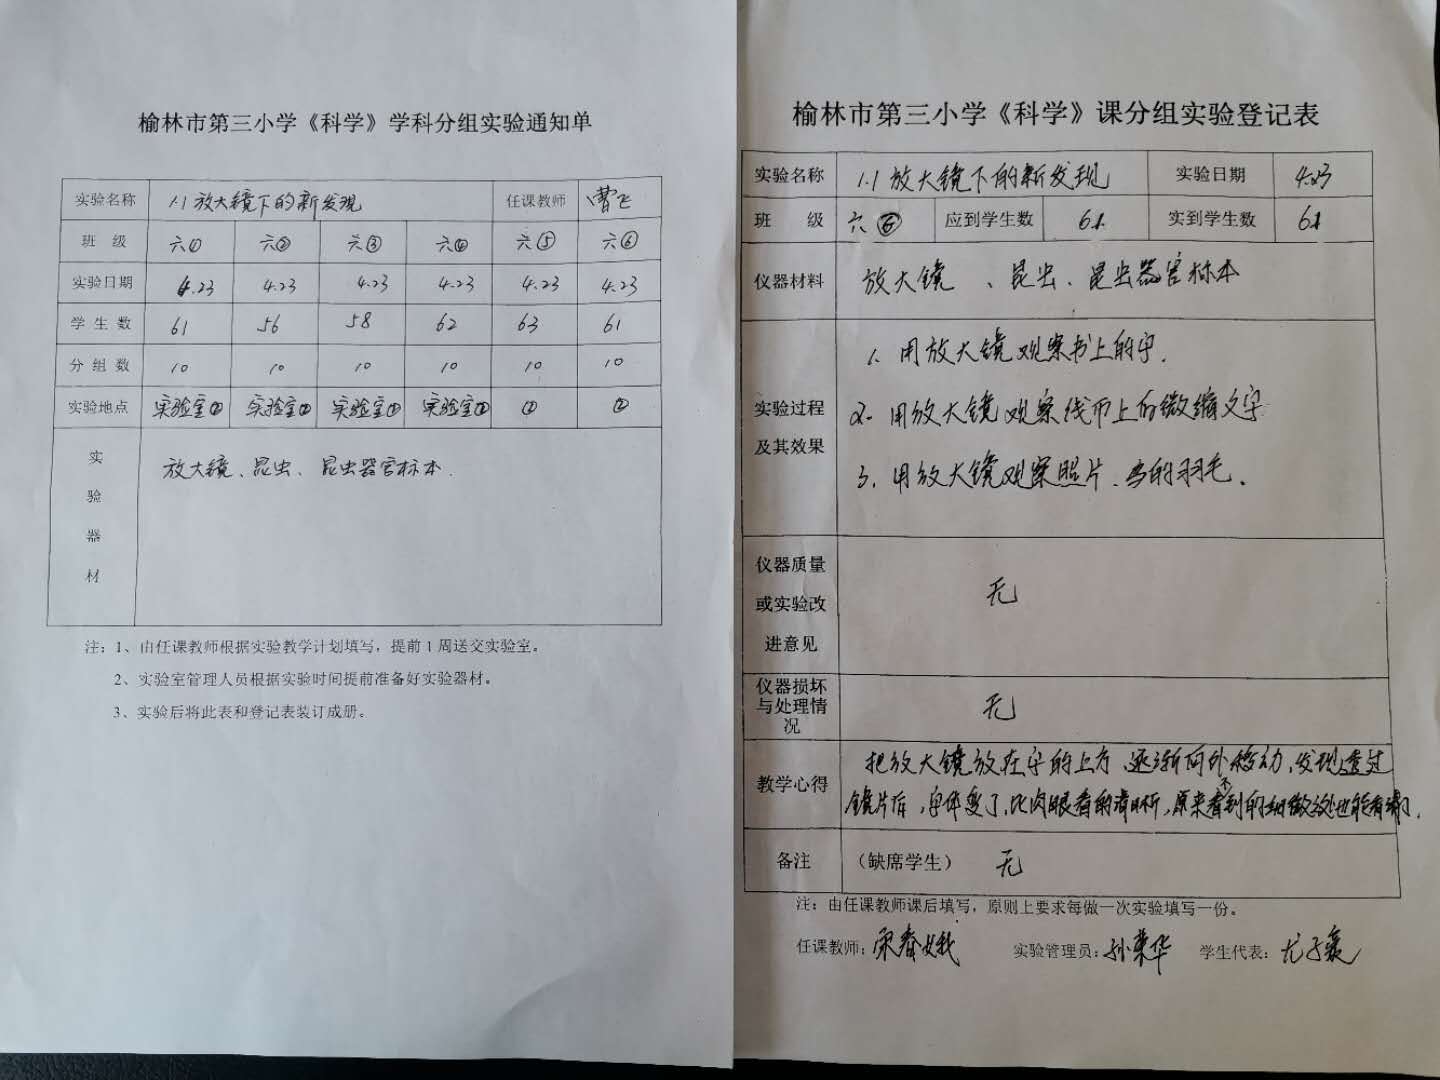 榆林市第三小学《科学》学科分组实验通知单
实验名称 1.1 放大镜下的新发现 任课教师 曹飞
班 级 六① 六② 六③ 六④ 六⑤ 六⑥
实验日期 4.23 4.23 4.23 4.23 4.23 4.23
学 生 数 61 56 58 62 63 61
分 组 数 10 10 10 10 10 10
实验地点 实验室② 实验室② 实验室② 实验室② ② ②
实验器材 放大镜、昆虫、昆虫器官标本.
注：1、由任课教师根据实验教学计划填写，提前 1 周送交实验室。
2、实验室管理人员根据实验时间提前准备好实验器材。
3、实验后将此表和登记表装订成册。
榆林市第三小学《科学》课分组实验登记表
实验名称 1.1 放大镜下的新发现 实验日期 4.23
班 级 六⑥ 应到学生数 61 实到学生数 61
仪器材料 放大镜 、昆虫、昆虫器官标本
实验过程及其效果
1. 用放大镜观察书上的字.
2. 用放大镜观察钱币上的微缩文字
3. 用放大镜观察照片、鸟的羽毛.
仪器质量或实验改进意见 无
仪器损坏与处理情况 无
教学心得 把放大镜放在字的上方,逐渐向外移动,发现透过
镜片后,字体变了,比肉眼看的清晰,原来看不到的细微处也能看清了.
备注 （缺席学生） 无
注：由任课教师课后填写，原则上要求每做一次实验填写一份。
任课教师：宋春娥 实验管理员：孙荣华 学生代表：尤子